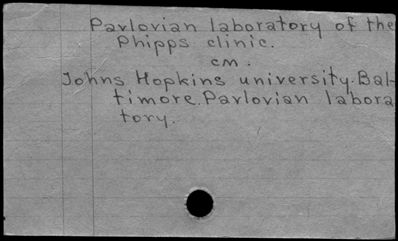 Pavlovian laboratory of the
Phipps clinic.
cm.
Johns Hopkins university. Bal-
timore. Pavlovian labora
tory.